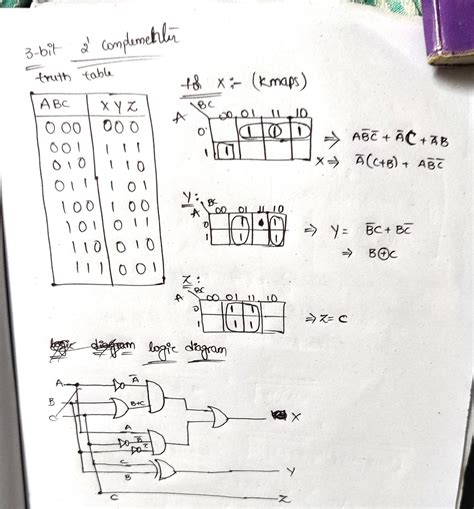 3-bit 2' complementer
truth table
ABC X Y Z
000 000
001 111
010 110
011 101
100 100
101 011
110 010
111 001
for x :- (Kmaps)
BC
A 00 01 11 10
0 1 1 1
1 1
⇒ AB̅C̅ + A̅C + A̅B
X ⇒ A̅(C+B) + AB̅C̅
Y:
BC
A 00 01 11 10
0 1 1
1 1 1
⇒ Y = B̅C + BC̅
⇒ B⊕C
Z:
BC
A 00 01 11 10
0 1 1
1 1 1
⇒ Z = C
logic diagram logic diagram
A A̅
B B+C X
C
A
B̅
C̅
C
B Y
C Z